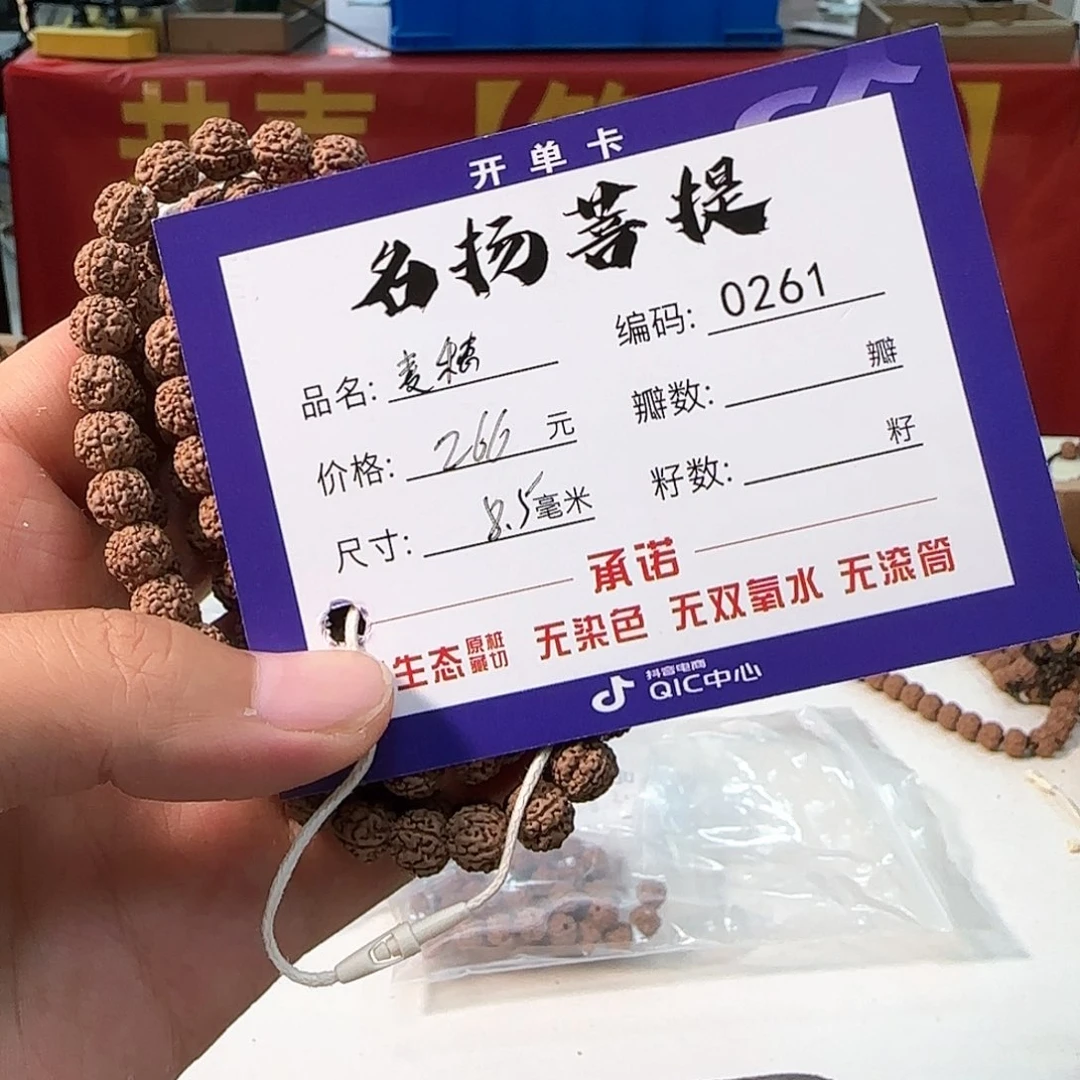 开单卡
名扬菩提
品名: 麦穗
编码: 0261
价格: 266 元
瓣数: 瓣
尺寸: 8.5毫米
籽数: 籽
承诺
生态 原桩藏切 无染色 无双氧水 无滚筒
抖音电商
QIC中心